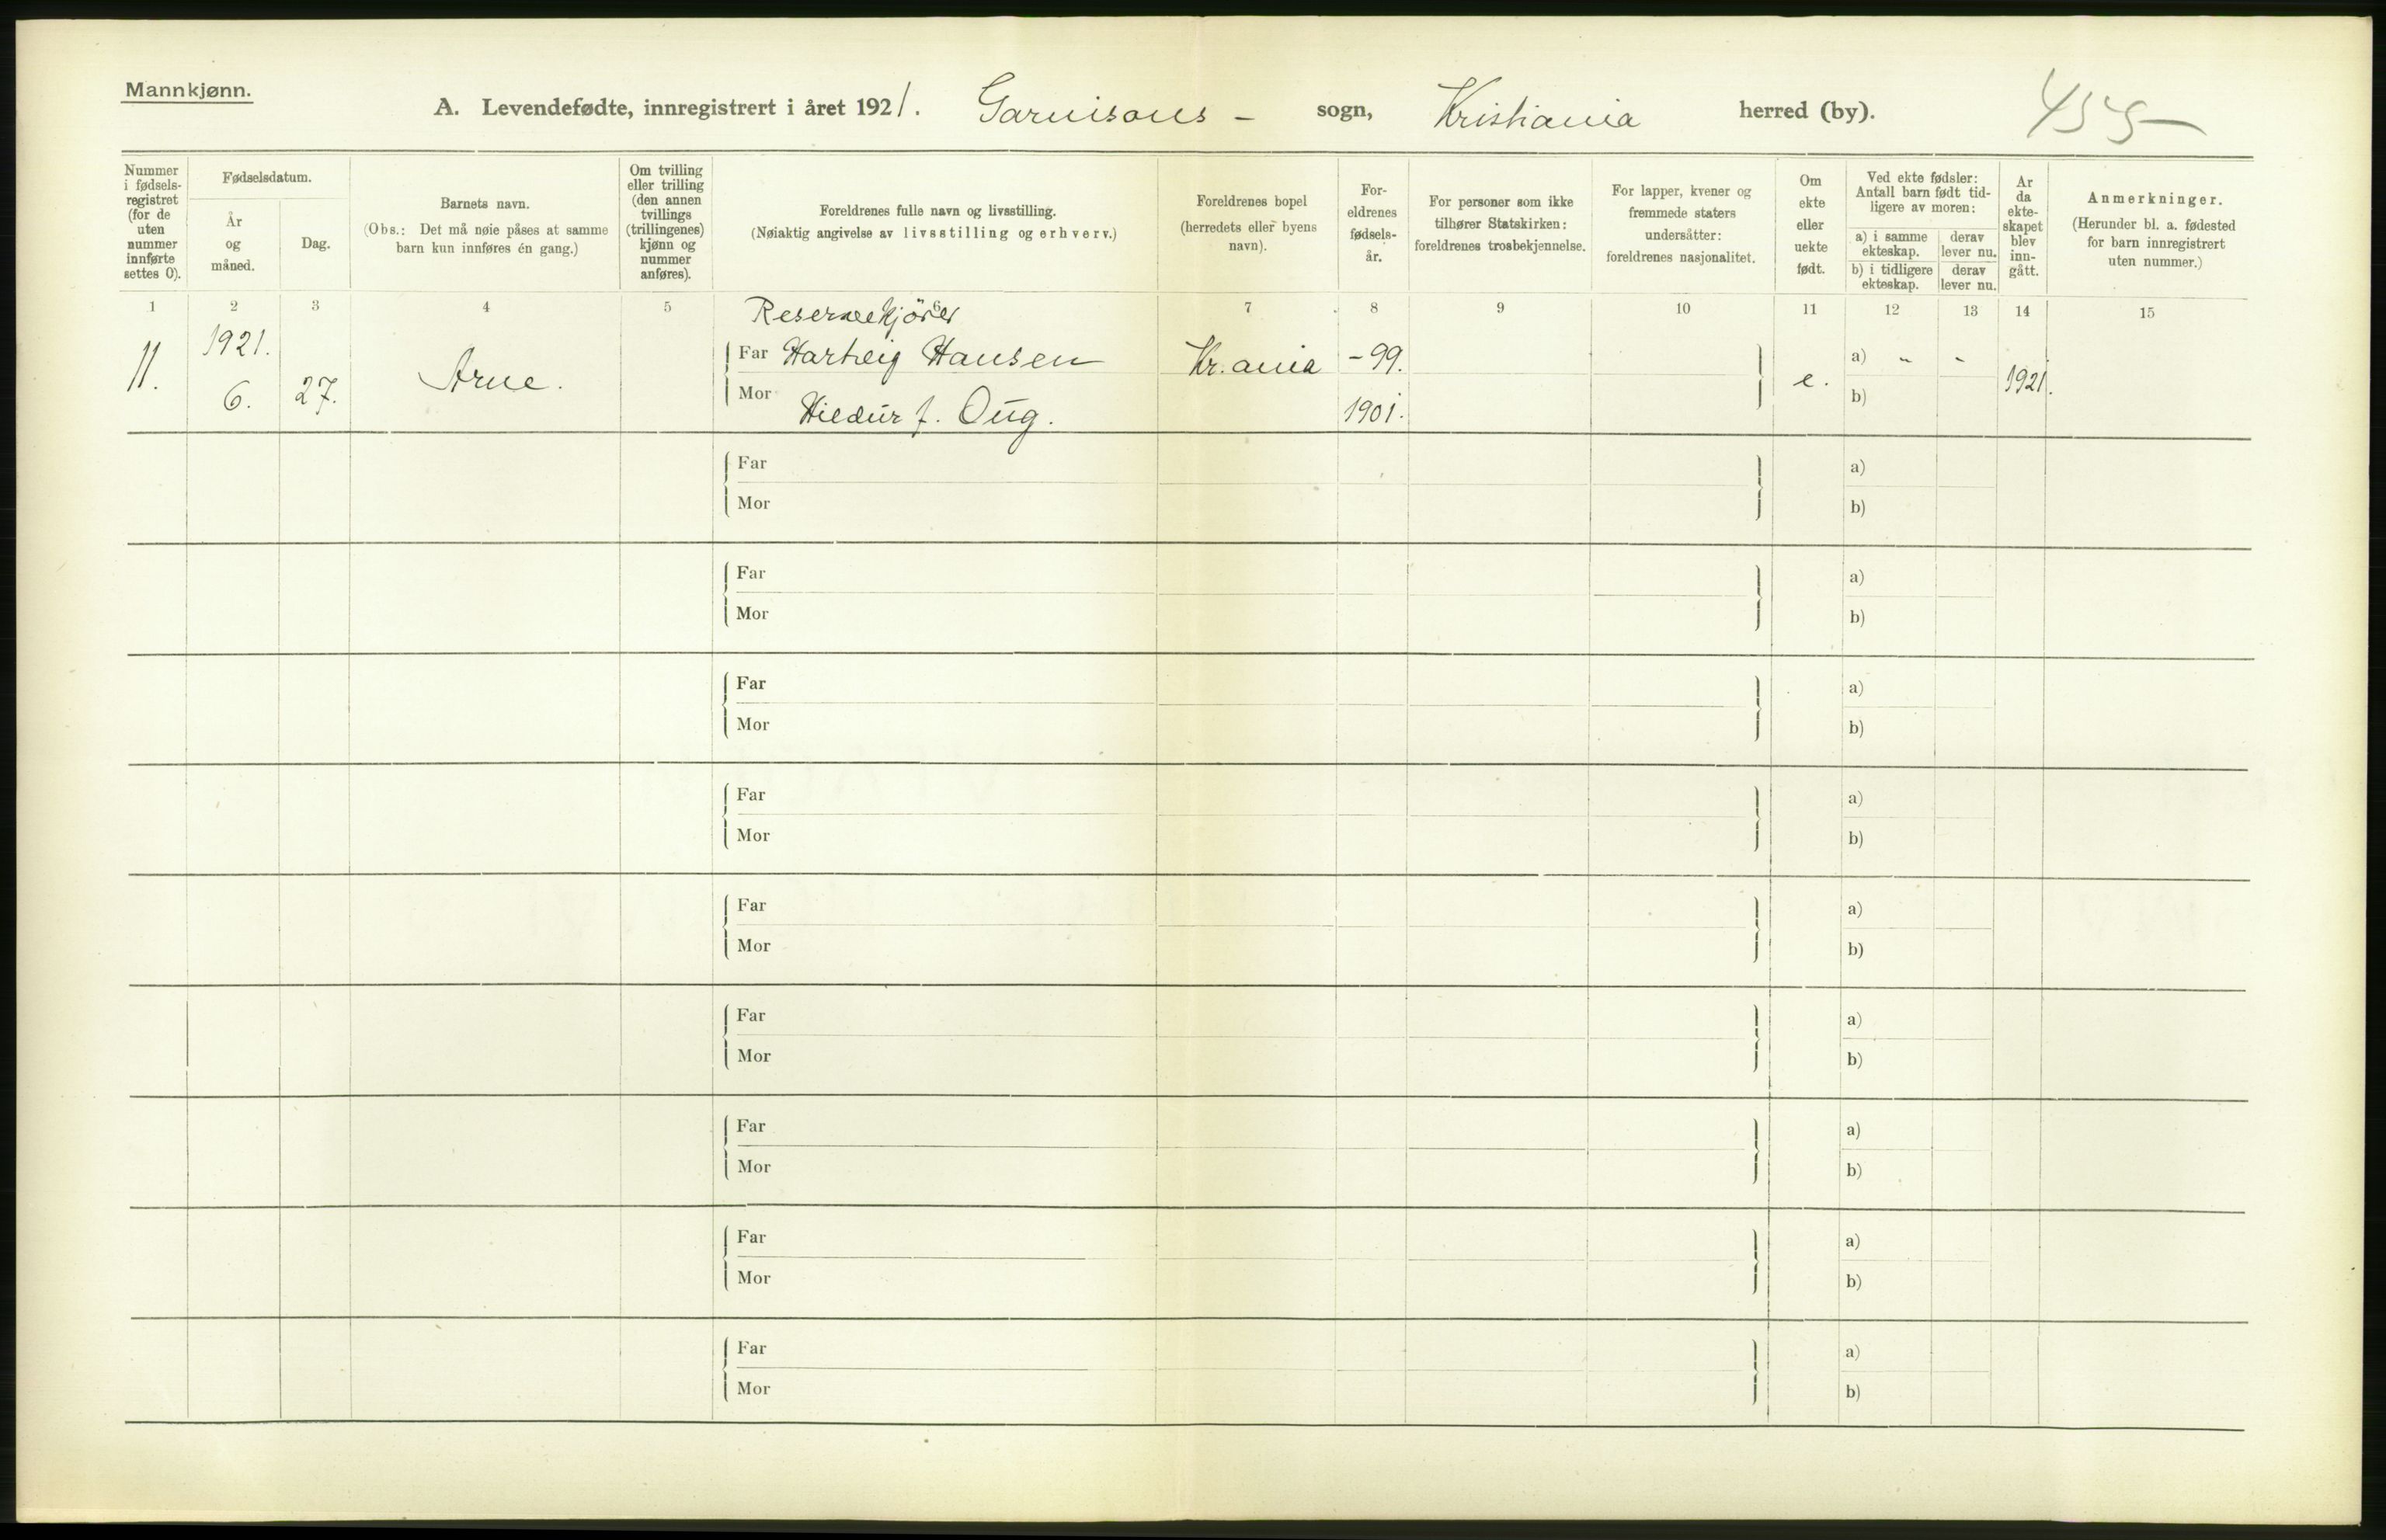 Mannkjønn.
A. Levendefødte, innregistrert i året 1921. Garnisons - sogn, Kristiania herred (by). 455
Nummer i fødselsregistret (for de uten nummer innførte settes 0).
Fødselsdatum.
År og måned.
Dag.
Barnets navn.
(Obs.: Det må nøie påses at samme barn kun innføres én gang.)
Om tvilling eller trilling (den annen tvillings (trillingenes) kjønn og nummer anføres).
Foreldrenes fulle navn og livsstilling.
(Nøiaktig angivelse av livsstilling og erhverv.)
Foreldrenes bopel (herredets eller byens navn).
Foreldrenes fødselsår.
For personer som ikke tilhører Statskirken: foreldrenes trosbekjennelse.
For lapper, kvener og fremmede staters undersåtter: foreldrenes nasjonalitet.
Om ekte eller uekte født.
Ved ekte fødsler: Antall barn født tidligere av moren:
a) i samme ekteskap. derav lever nu.
b) i tidligere ekteskap. derav lever nu.
Ar da ekteskapet blev inngått.
Anmerkninger.
(Herunder bl. a. fødested for barn innregistrert uten nummer.)
1 2 3 4 5 6 7 8 9 10 11 12 13 14 15
Reservekjörer
11. 1921. 6. 27. Arne. Far Hartvig Hansen Kr.ania -99. e. a) " - 1921.
Mor Hildur f. Oug. 1901. b)
Far a)
Mor b)
Far a)
Mor b)
Far a)
Mor b)
Far a)
Mor b)
Far a)
Mor b)
Far a)
Mor b)
Far a)
Mor b)
Far a)
Mor b)
Far a)
Mor b)